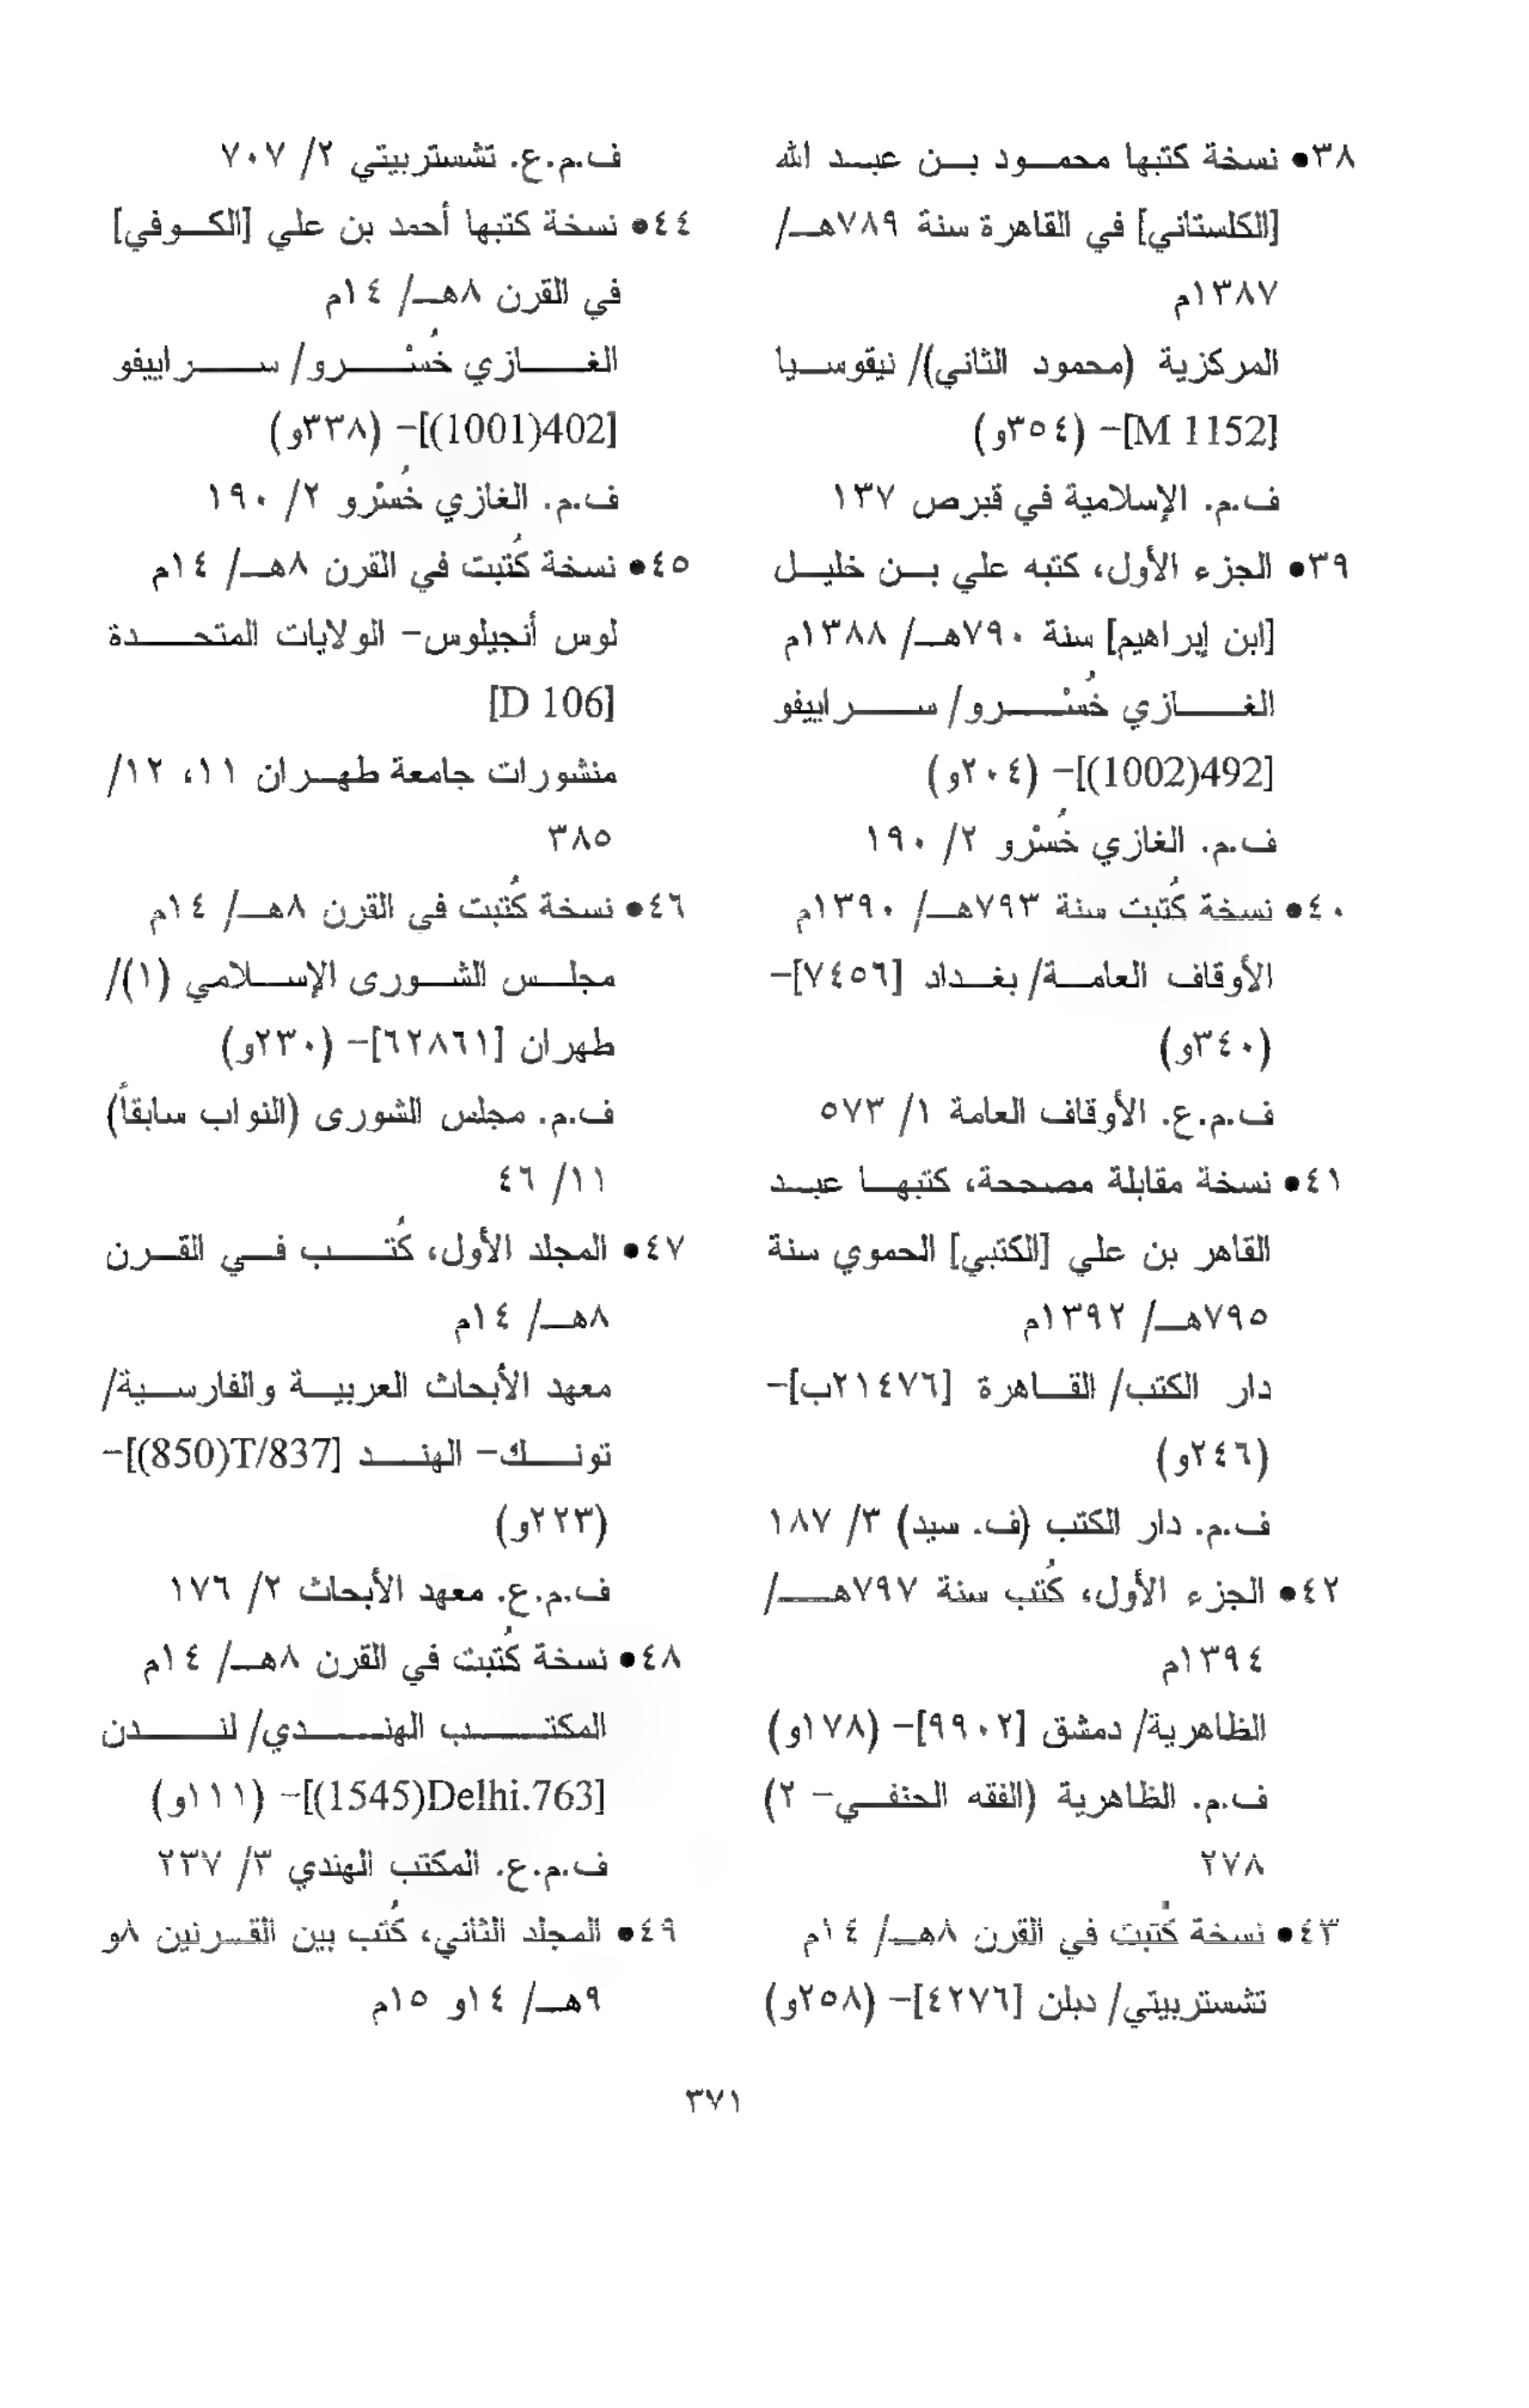 ٣٨● نسخة كتبها محمـــود بـــن عبـــد الله
[الكلستاني] في القاهرة سنة ٧٨٩هـــ/
١٣٨٧م
المركزية (محمود الثاني)/ نيقوســـيا
[M 1152]– (٣٥٤و)
ف.م. الإسلامية في قبرص ١٣٧
٣٩● الجزء الأول، كتبه علي بـــن خليـــل
[ابن إبراهيم] سنة ٧٩٠هـــ/ ١٣٨٨م
الغـــازي خُسْـــرو/ ســـراييفو
[492(1002)]– (٢٠٤و)
ف.م. الغازي خُسْرو ٢/ ١٩٠
٤٠● نسخة كُتبت سنة ٧٩٣هـــ/ ١٣٩٠م
الأوقاف العامـــة/ بغـــداد [٧٤٥٦]–
(٣٤٠و)
ف.م.ع. الأوقاف العامة ١/ ٥٧٣
٤١● نسخة مقابلة مصححة، كتبهـــا عبـــد
القاهر بن علي [الكتبي] الحموي سنة
٧٩٥هـــ/ ١٣٩٢م
دار الكتب/ القـــاهرة [٢١٤٧٦ب]–
(٢٤٦و)
ف.م. دار الكتب (ف. سيد) ٣/ ١٨٧
٤٢● الجزء الأول، كُتب سنة ٧٩٧هـــ/
١٣٩٤م
الظاهرية/ دمشق [٩٩٠٢]– (١٧٨و)
ف.م. الظاهرية (الفقه الحنفـــي– ٢)
٢٧٨
٤٣● نسخة كُتبت في القرن ٨هـــ/ ١٤م
تشستربيتي/ دبلن [٤٢٧٦]– (٢٥٨و)
ف.م.ع. تشستربيتي ٢/ ٧٠٧
٤٤● نسخة كتبها أحمد بن علي [الكـــوفي]
في القرن ٨هـــ/ ١٤م
الغـــازي خُسْـــرو/ ســـراييفو
[402(1001)]– (٣٣٨و)
ف.م. الغازي خُسْرو ٢/ ١٩٠
٤٥● نسخة كُتبت في القرن ٨هـــ/ ١٤م
لوس أنجيلوس– الولايات المتحـــدة
[D 106]
منشورات جامعة طهـــران ١١، ١٢/
٣٨٥
٤٦● نسخة كُتبت في القرن ٨هـــ/ ١٤م
مجلـــس الشـــورى الإســـلامي (١)/
طهران [٦٢٨٦١]– (٢٣٠و)
ف.م. مجلس الشورى (النواب سابقاً)
١١/ ٤٦
٤٧● المجلد الأول، كُتـــب فـــي القـــرن
٨هـــ/ ١٤م
معهد الأبحاث العربيـــة والفارســـية/
تونـــك– الهنـــد [T/837(850)]–
(٢٢٣و)
ف.م.ع. معهد الأبحاث ٢/ ١٧٦
٤٨● نسخة كُتبت في القرن ٨هـــ/ ١٤م
المكتـــب الهنـــدي/ لنـــدن
[Delhi.763(1545)]– (١١١و)
ف.م.ع. المكتب الهندي ٣/ ٢٣٧
٤٩● المجلد الثاني، كُتب بين القـــرنين ٨و
٩هـــ/ ١٤و ١٥م
٣٧١